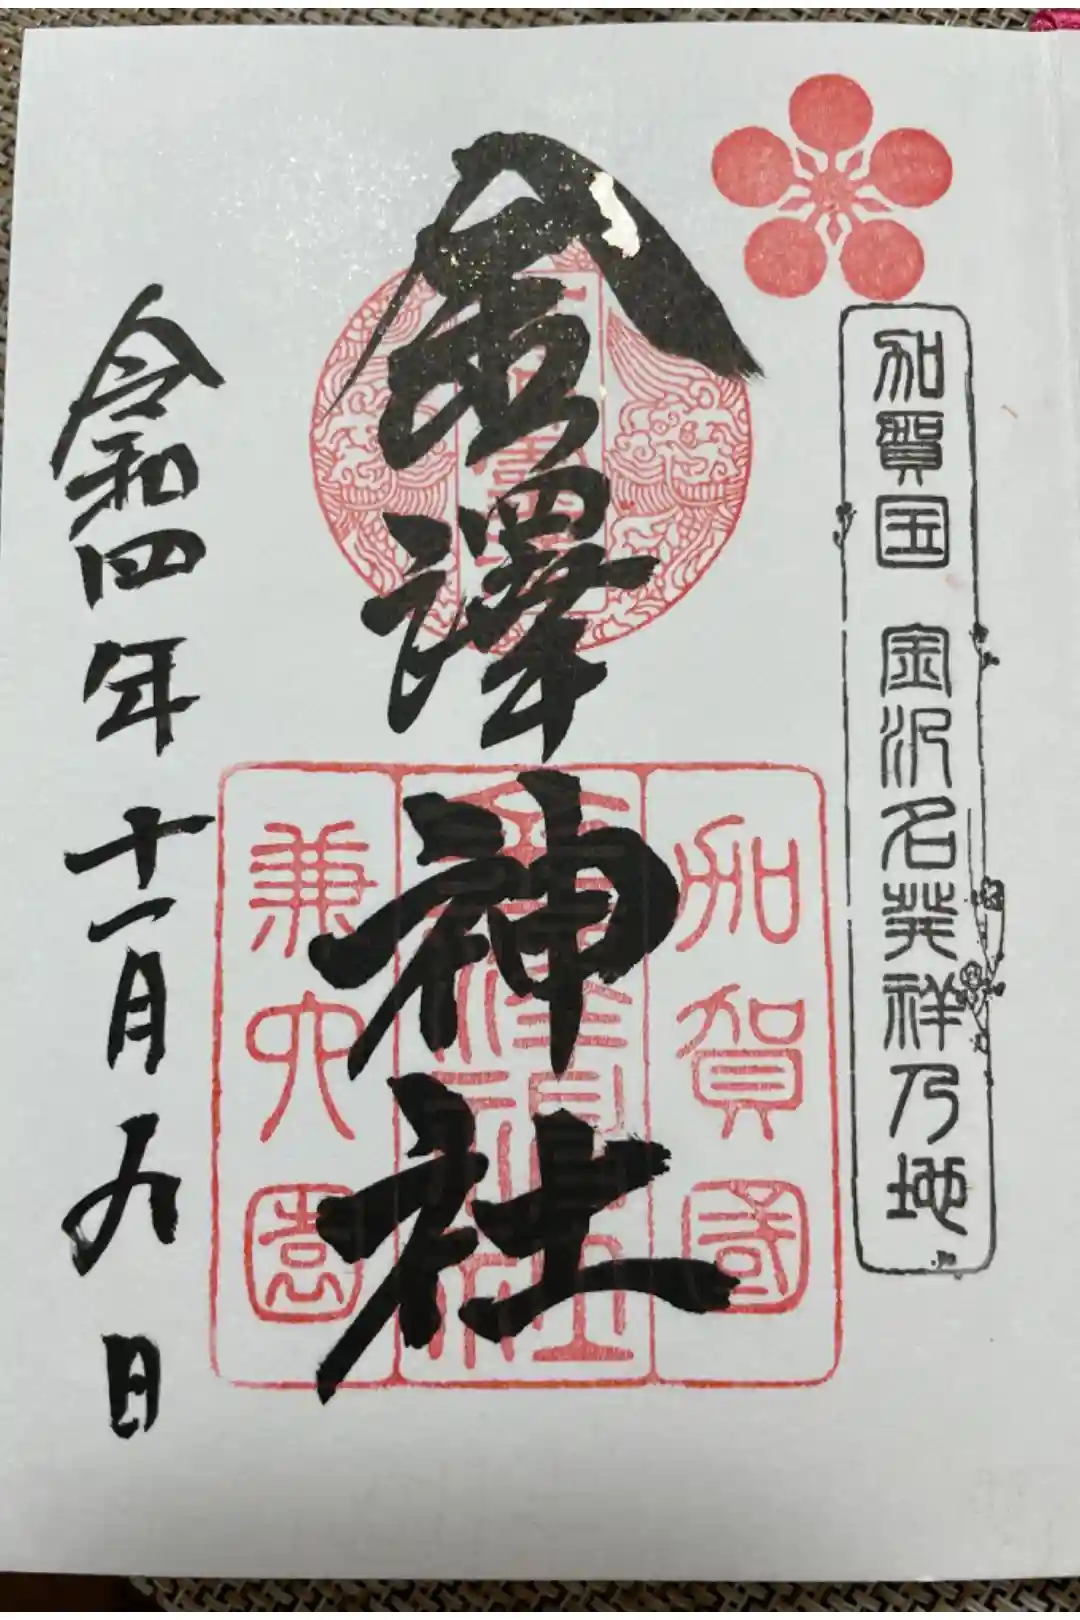 加賀国 金沢名発祥乃地
加賀國
金澤神社
兼六園
金澤神社
令和四年十一月九日